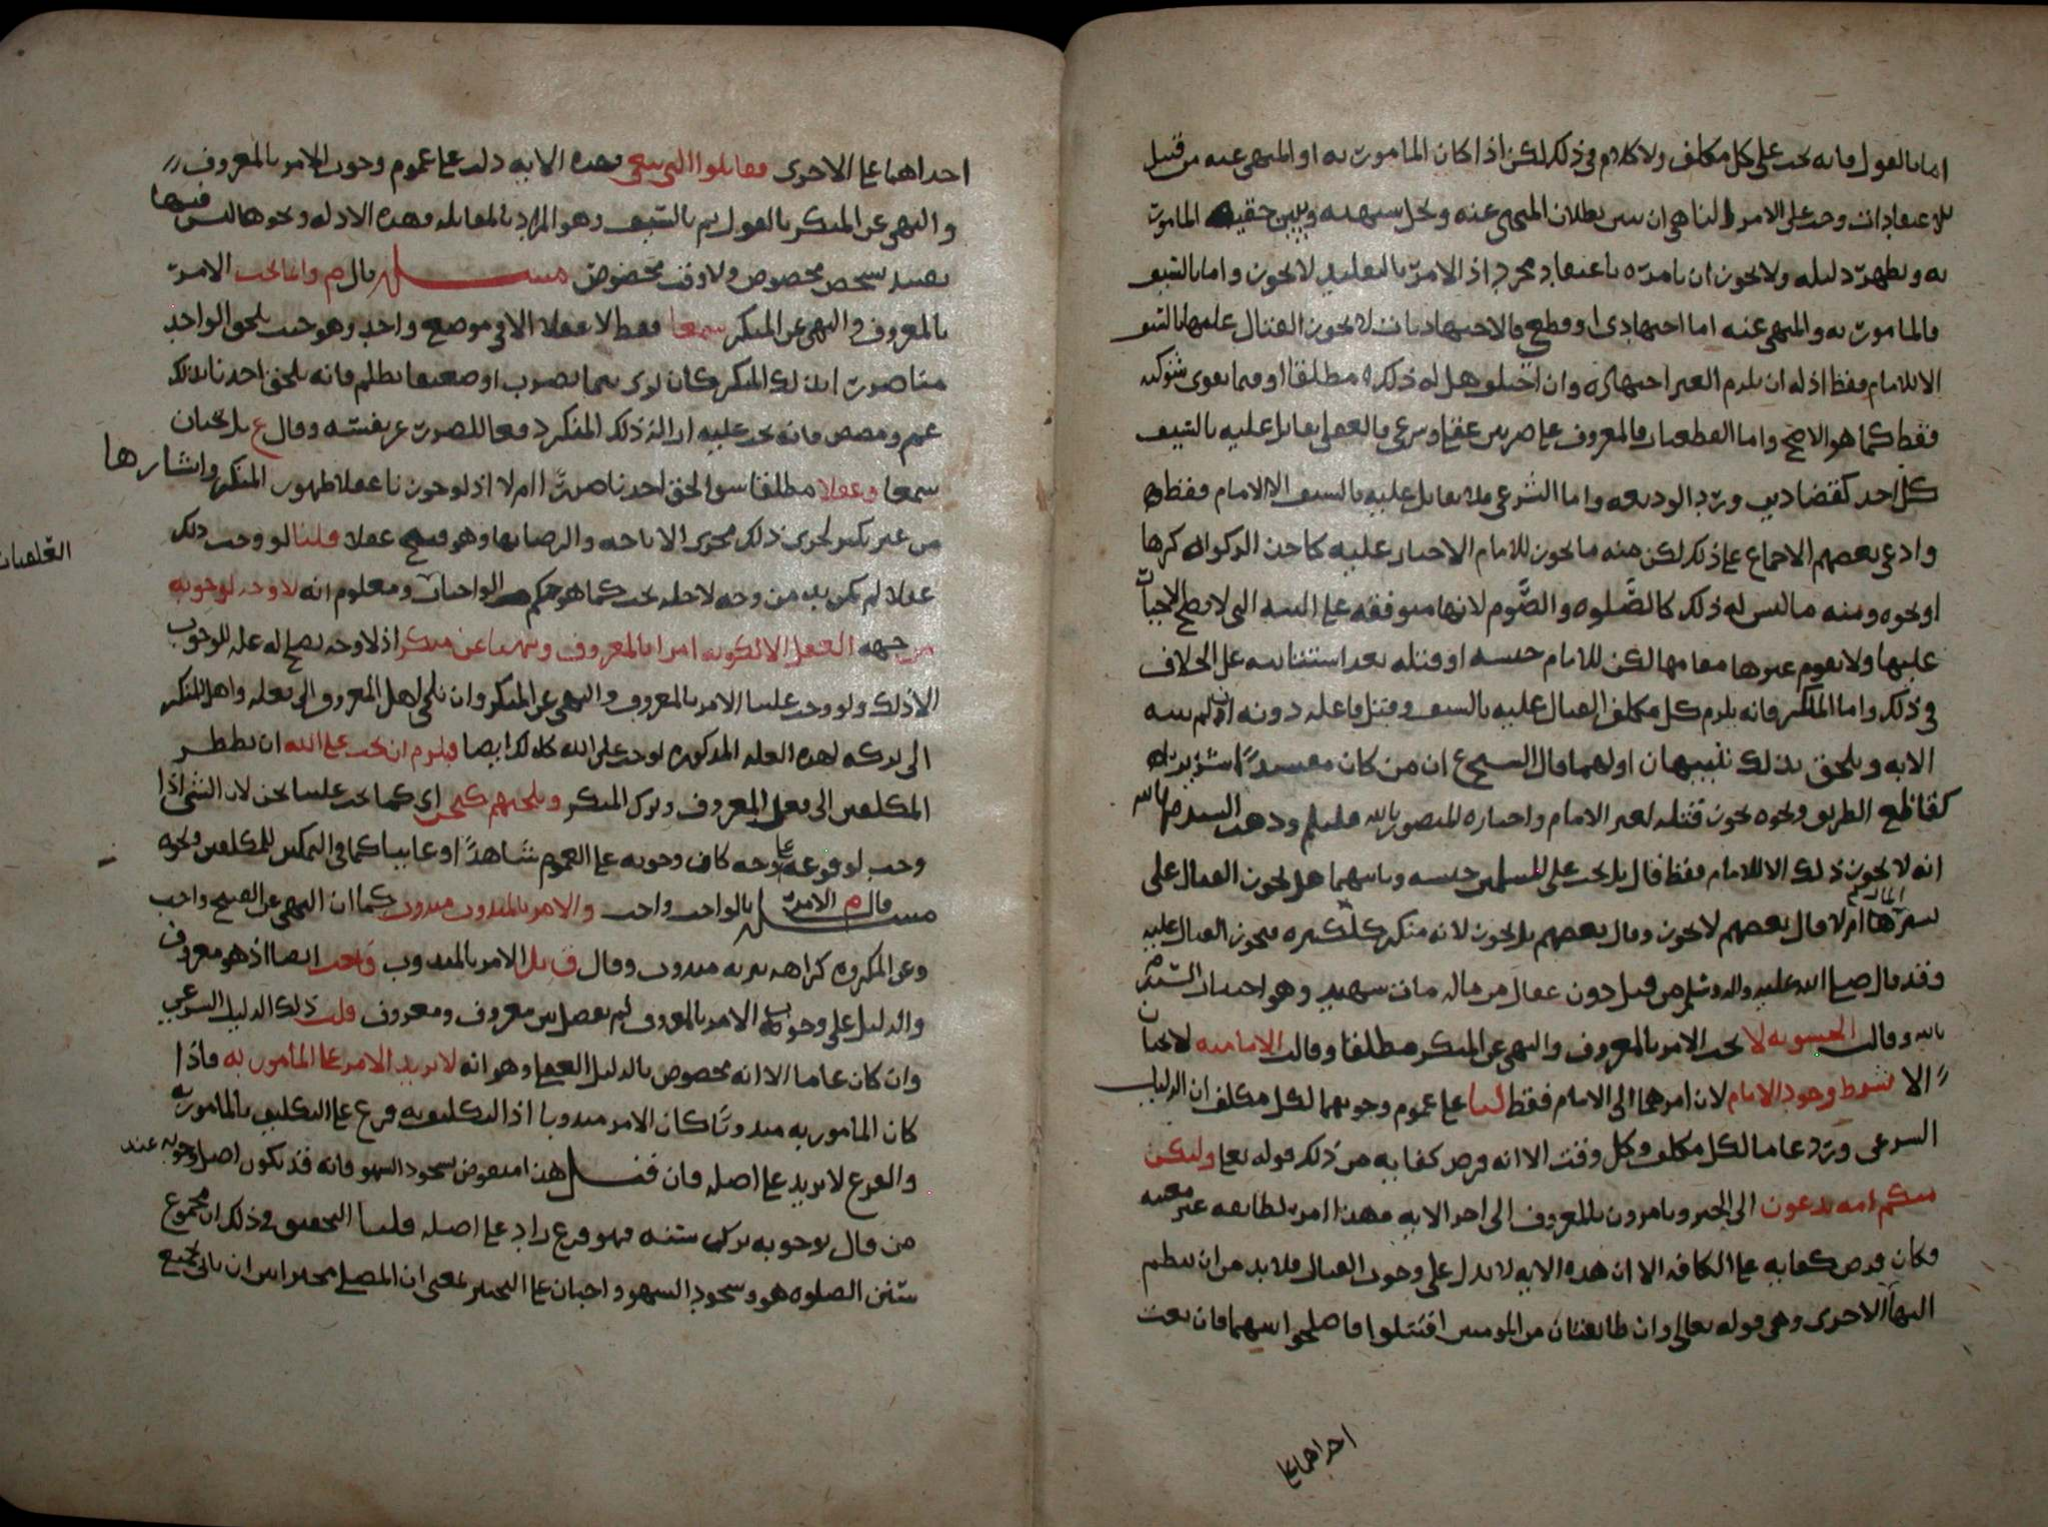 اما بالقول فانه يجب على كل مكلف ولا كلام في ذلك لكن اذا كان المامور به او المنهي عنه من قبيل
الاعتقادات وجب على الامر والناهي ان يبين بطلان المنهي عنه ويحل شبهته ويبين حقية المامور
به ويظهر دليله ولا يجوز ان يامره باعتقاد مجرد اذ الامر بالتقليد لا يجوز واما بالسيف
فالمامور به والمنهي عنه اما اجتهادي او قطعي فالاجتهاديات لا يجوز القتال عليها بالسيف
الا للامام فقط اذ له ان يلزم الغير اجتهاده وان اختلفوا هل له ذلك مطلقا او فيما يقوي شوكته
فقط كما هو الاصح واما القطعيات فالمعروف على ضربين عقلي وشرعي فالعقلي يقاتل عليه بالسيف
كل احد كقضا دين ورد الوديعه واما الشرعي فلا يقاتل عليه بالسيف الا الامام فقط
وادعى بعضهم الاجماع على ذلك لكن منه ما يجوز للامام الاجبار عليه كاخذ الزكواة كرها
او نحوه ومنه ما ليس له ذلك كالصلوه والصوم لانها متوقفه على النيه التي لا يصح الاجبار
عليها ولا يقوم غيرها مقامها لكن للامام حبسه او قتله بعد استتابته على الخلاف
في ذلك واما المنكر فانه يلزم كل مكلف القتال عليه بالسيف وقتل فاعله دونه ان لم ينته
الا به ويلحق بذلك تنبيهان اولهما قال الشيخ ع ان من كان مفسدا
كقاطع الطريق ونحوه يجوز قتله لغير الامام واختاره المنصور بالله عليلم وذهب السيد م بالله
انه لا يجوز ذلك الا للامام فقط قال بل يجب على المسلمين حبسه وثانيهما هل يجوز القتال على
المال ام لا قال بعضهم لا يجوز وقال بعضهم بل يجوز لانه منكر ككبيره فيجوز القتال عليه
وقد قال صلى الله عليه واله وسلم من قتل دون عقال من ماله مات شهيد وهو اختيار السيد م
بالله وقالت الحشويه لا يجب الامر بالمعروف والنهي عن المنكر مطلقا وقالت الاماميه لا يجبان
الا بشرط وجود الامام لان امرهما الى الامام فقط لنا على عموم وجوبهما لكل مكلف ان الدليل
السرعي ورد عاما لكل مكلف وكل وقت الا انه فرض كفايه من ذلك قوله تعالى ولتكن
منكم امه يدعون الى الخير ويامرون بالمعروف الى اخر الايه فهذا امر لطايفه غير معينه
فكان فرض كفايه على الكافه الا ان هذه الايه لا تدل على وجوب القتال فلا بد من ان ينظم
اليها الاخرى وهي قوله تعالى وان طايفتان من المومنين اقتتلوا فاصلحوا بينهما فان بغت
احداهما على
احداهما على الاخرى فقاتلوا التي تبغي فهذه الايه دلت على عموم وجوب الامر بالمعروف
والنهي عن المنكر بالقول ثم بالسيف وهو المراد بالمقاتله فهذه الادله ونحوها ليس فيها
تقييد بشخص مخصوص ولا وقت مخصوص مسله قال م وانما يجب الامر
بالمعروف والنهي عن المنكر سمعا فقط لا عقلا الا في موضع واحد وهو حيث يلحق الواحد
منا ضرر بذلك المنكر وكان يرى يتيما يضرب او ضعيفا يظلم فانه يلحق احدنا بذلك
غم ومضض فانه يجب عليه ازالة ذلك المنكر دفعا للضرر عن نفسه وقال ع بل يجبان
سمعا وعقلا مطلقا سوا لحق احدنا ضررا ام لا اذ لو جوزنا عقلا ظهور المنكر وانتشارها
من غير نكير لجرى ذلك مجرى الاباحه والرضا بها وهو قبيح عقلا قلنا لو وجب ذلك
العقليات
عقلا لم يكن بد من وجه لاجله يجب كما هو حكم الواجبات ومعلوم انه لا وجه لوجوبه
من جهه العقل الا لكونه امرا بالمعروف ونهيا عن منكر اذ لا وجه يصح له عله للوجوب
الا ذلك ولو وجب علينا الامر بالمعروف والنهي عن المنكر وان نلجي اهل المعروف الى فعله واهل المنكر
الى تركه لهذه العله المذكوره لوجب على الله كذلك ايضا فيلزم ان يجب على الله ان يظطر
المكلفين الى فعل المعروف وترك المنكر ويلجيهم كنحن اي كما يجب علينا نحن لان الشي اذا
وجب لوقوعه على وجه كان وجوبه على العموم شاهدا او غايبا كما في التمكين للمكلفين ونحوه
مسله قال م الامر بالواجب واجب والامر بالمندوب مندوب كما ان النهي عن القبيح واجب
وعن المكروه كراهه تنزيه مندوب وقال ق بل الامر بالمندوب واجب ايضا اذ هو معروف
والدليل على وجوب الامر بالمعروف لم يفصل بين معروف ومعروف قلت ذلك الدليل الشرعي
وان كان عاما الا انه مخصوص بالدليل العقلي وهو انه لا يزيد الامر على المامور به فاذا
كان المامور به مندوبا كان الامر مندوبا اذ التكليف به فرع على التكليف بالمامور به
والفرع لا يزيد على اصله فان قيل هذا منقوض بسجود السهو فانه قد يكون اصل وجوبه عند
من قال بوجوبه ترك سنه فهو فرع زاد على اصله قلنا التحقيق في ذلك ان مجموع
سنن الصلوه هو وسجود السهو واجبان على التخيير بمعنى ان المصلي مخير بين ان ياتي بجميع